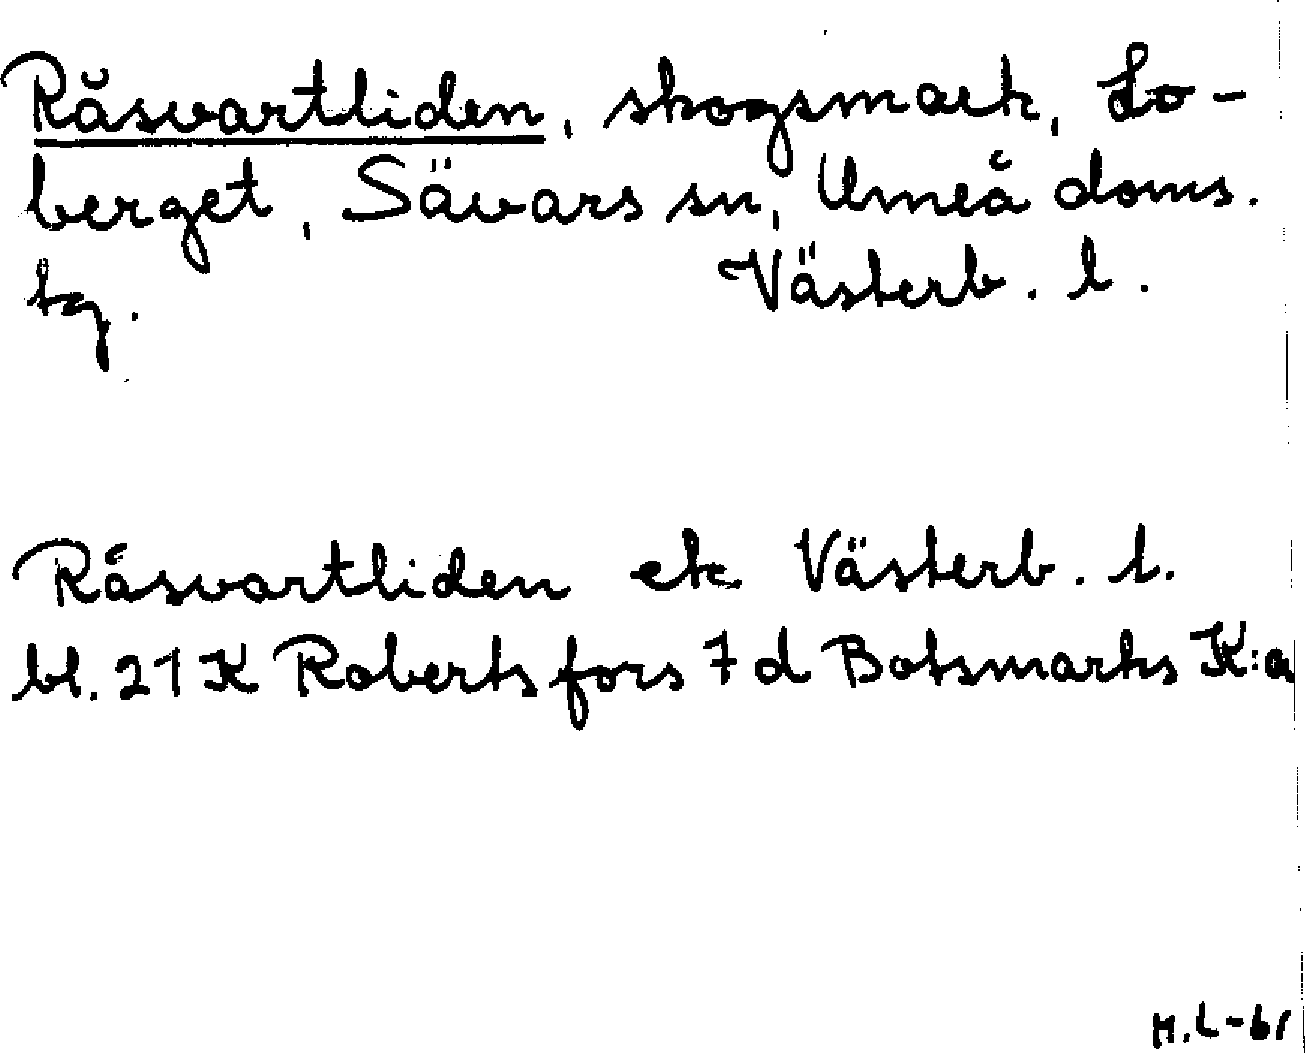 Råsvartliden, skogsmark, Lo-
berget, Sävars sn, Umeå doms.
tg. Västerb. l.
Råsvartliden ek Västerb. l.
bl. 21 K Robertsfors 7 d Botsmarks K:a
H.L-61